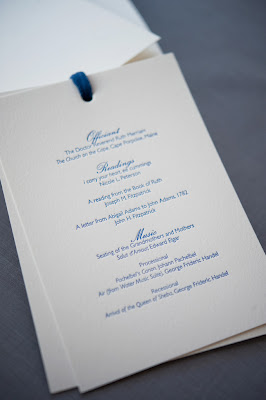 Officiant
The Doctor Reverend Ruth Merriam
The Church on the Cape, Cape Porpoise, Maine
Readings
i carry your heart, e.e. cummings
Nicole L. Peterson
A reading from the Book of Ruth
Joseph M. Fitzpatrick
A letter from Abigail Adams to John Adams, 1782
John H. Fitzpatrick
Music
Seating of the Grandmothers and Mothers
Salut d'Amour, Edward Elgar
Processional
Pachelbel's Canon, Johann Pachelbel
Air (from Water Music Suite), George Frideric Handel
Recessional
Arrival of the Queen of Sheba, George Frideric Handel